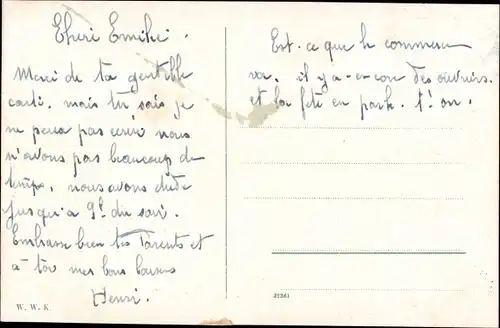 Cheri Emile.
Merci de ta gentille
carte. mais tu sais je
ne peux pas ecrir nous
n'avons pas beaucoup de
temps, nous avons etude
jusqu'a 9h du soir.
Embrasse bien tes Parents et
à toi mes bons baisers
Henri.
W. W. K.
Est-ce que le commerce
va. il y a-encore des ouvriers.
et la fête en parle. t'on.
31261